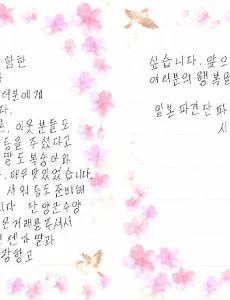 함한
러분에게
다.
른, 이웃분들도
등을 주셨다고
딸도 복숭아와
. 매우 맛있었습니다.
샤워 등도 준비해
니다 단양군수양
은 거래를 주셔서
센가 딸과
랑하고
싶습니다. 앞으
여러분의 행복을
일본 파견단 파
시